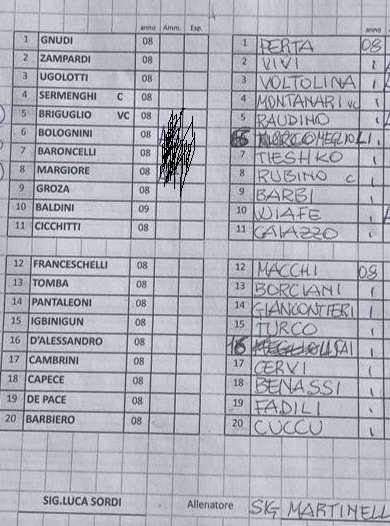 anno Amm. Esp. anno
1 GNUDI 08 1 PERTA 08
2 ZAMPARDI 08 2 VIVI
3 UGOLOTTI 08 3 VOLTOLINA
4 SERMENGHI C 08 4 MONTANARI VC
5 BRIGUGLIO VC 08 5 RAUDINO
6 BOLOGNINI 08
7 BARONCELLI 08 7 TIESHKO
8 MARGIORE 08 8 RUBINO C
9 GROZA 08 9 BARBI
10 BALDINI 09 10 WIAFE
11 CICCHITTI 08 11 CAIAZZO
12 FRANCESCHELLI 08 12 MACCHI 08
13 TOMBA 08 13 BORCIANI
14 PANTALEONI 08 14 GIANCONTIERI
15 IGBINIGUN 08 15 TURCO
16 D'ALESSANDRO 08 16
17 CAMBRINI 08 17 CERVI
18 CAPECE 08 18 BENASSI
19 DE PACE 08 19 FADILI
20 BARBIERO 08 20 CUCCU
SIG.LUCA SORDI Allenatore SIG MARTINELL